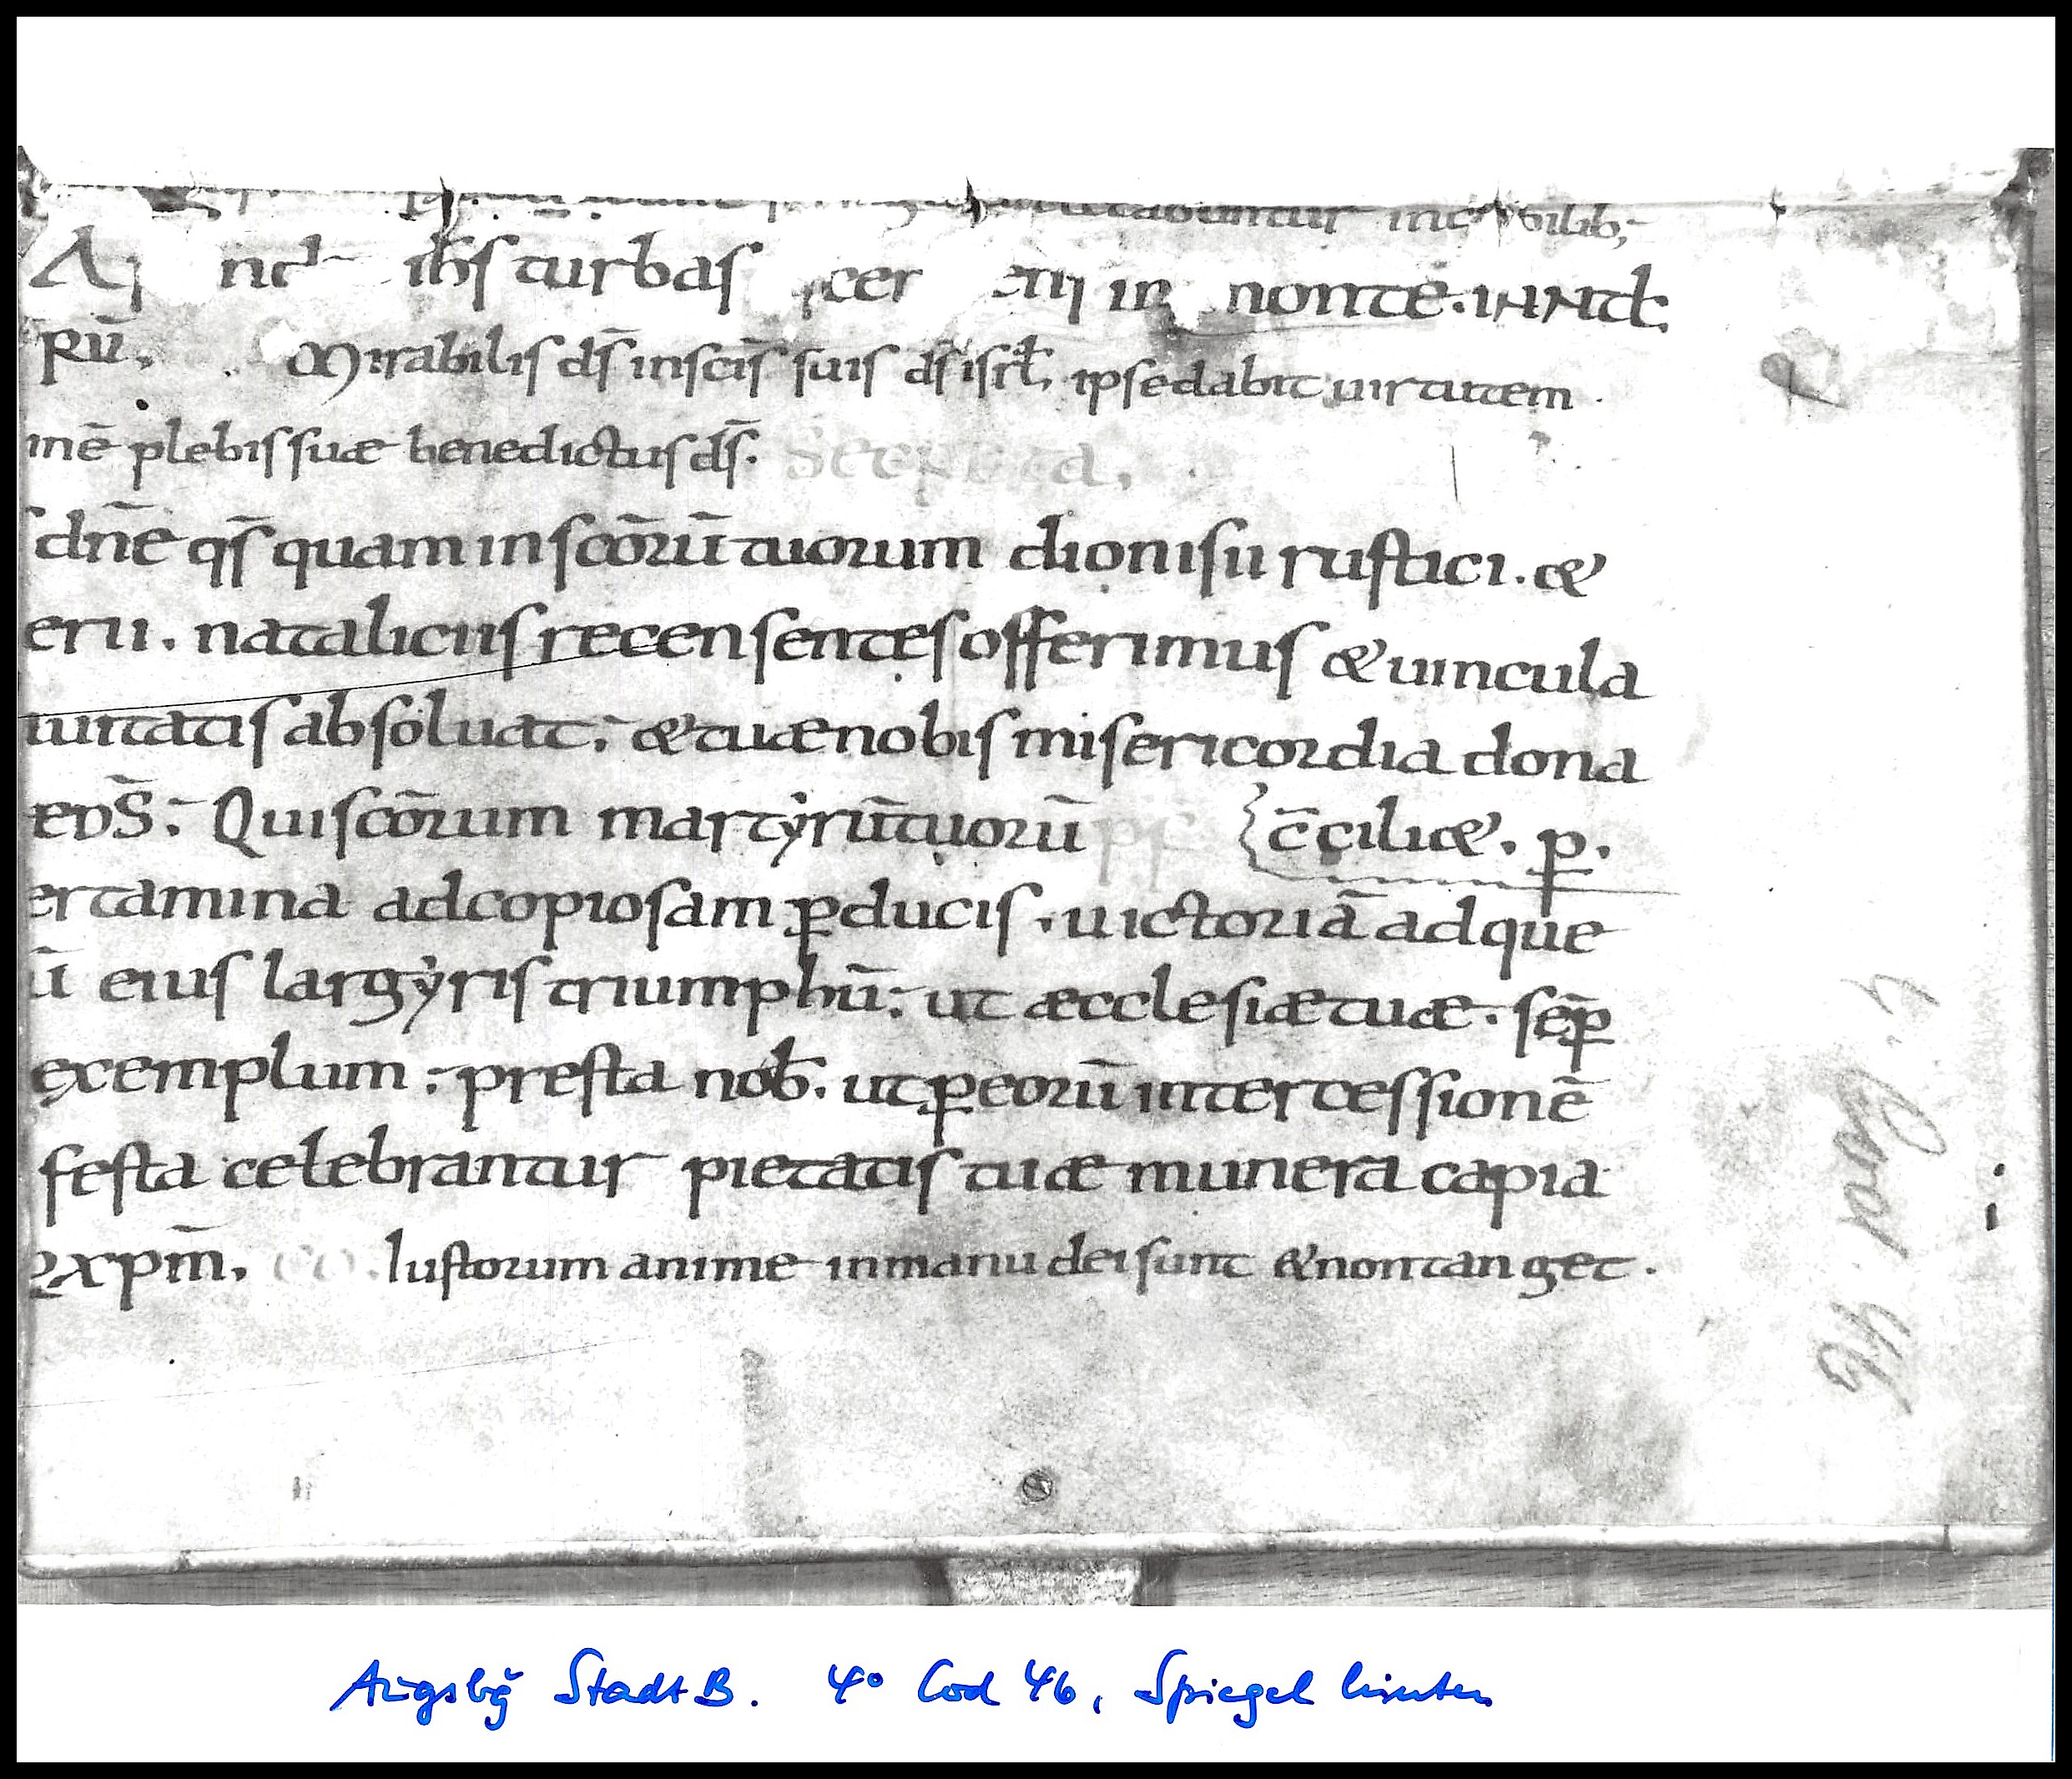 ihs turbas
pū. Mirabilis ds̄ in scīs suis ds̄ isrl̄, ipse dabit uirtutem
mē plebis suæ benedictus ds̄. Secreta,
dn̄e qs̄ quam in scōrū tuorum dionisii rustici. &
erii. nataliciis recensentes offerimus & uincula
uitatis absoluat; & tuæ nobis misericordia dona
eDS̄; Qui scōrum martẏrū tuorū pf̄ c̄ciliæ. p.
ertamina ad copiosam ꝑducis, uictoriā adque
ū eius largẏris triumphū; ut æcclesiæ tuæ. sēꝑ
exemplum; presta nob̄. ut ꝑ eorū intercessionē
festa celebrantur pietatis tuæ munera capia
xpm̄, co. Iustorum anime in manu dei sunt & non tanget.
4. Cod. 46
Augsbg Stadt B. 4° Cod 46, Spiegel hinten